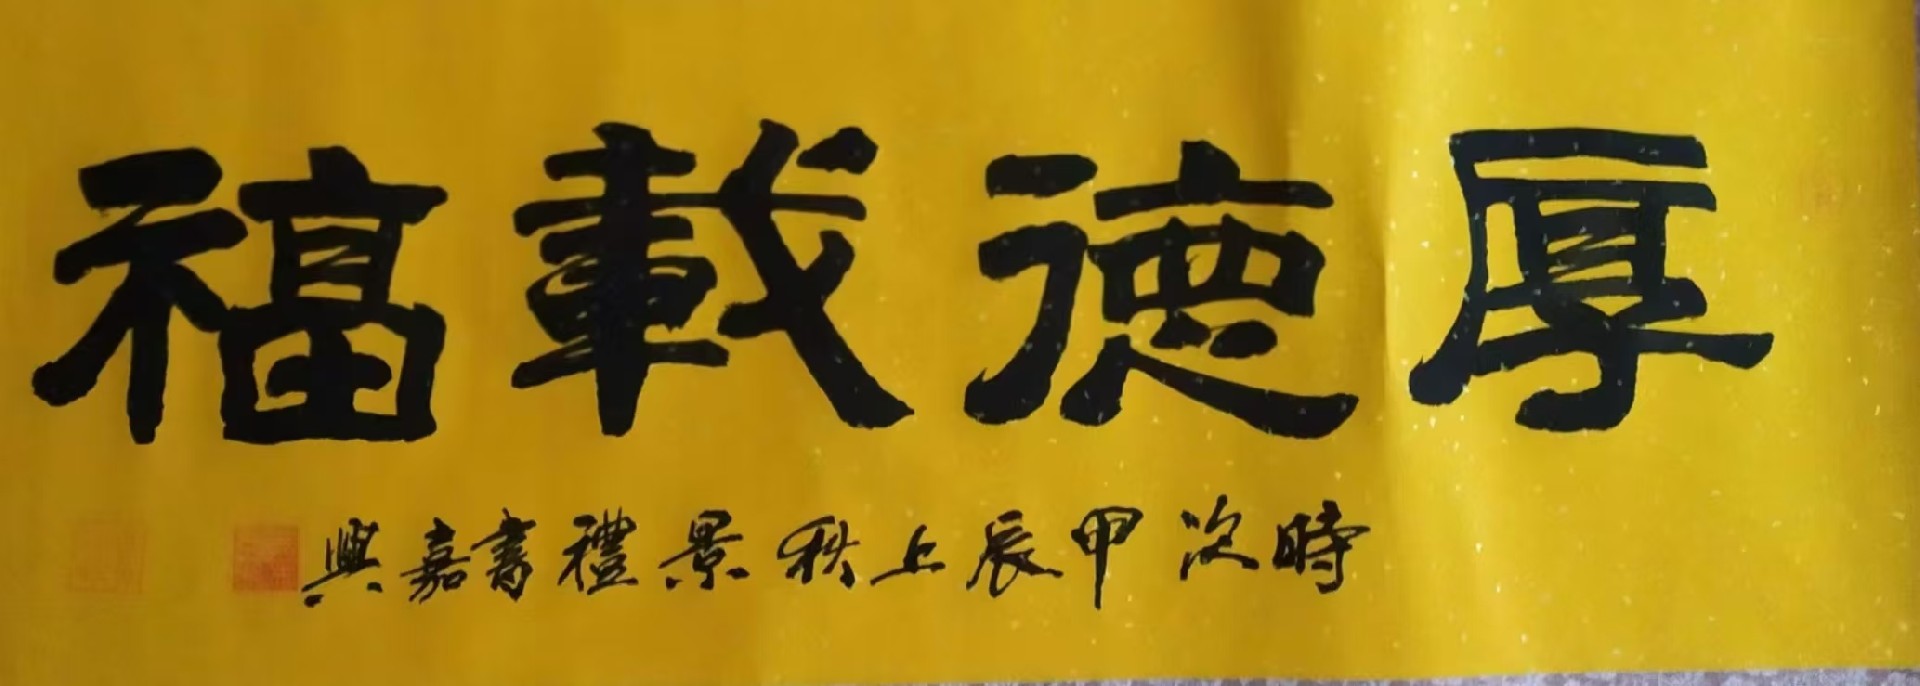 厚德載福
時次甲辰上秋景禮書嘉興